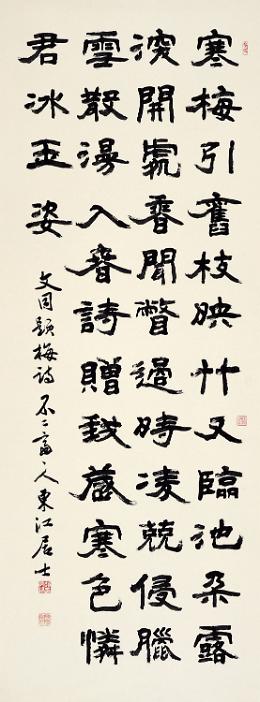 寒梅引舊枝映竹又臨池朵露
深開處香聞瞥過時凌兢侵臘
雪散漫入春詩贈致歲寒色憐
君冰玉姿
文同題梅詩 人東江居士